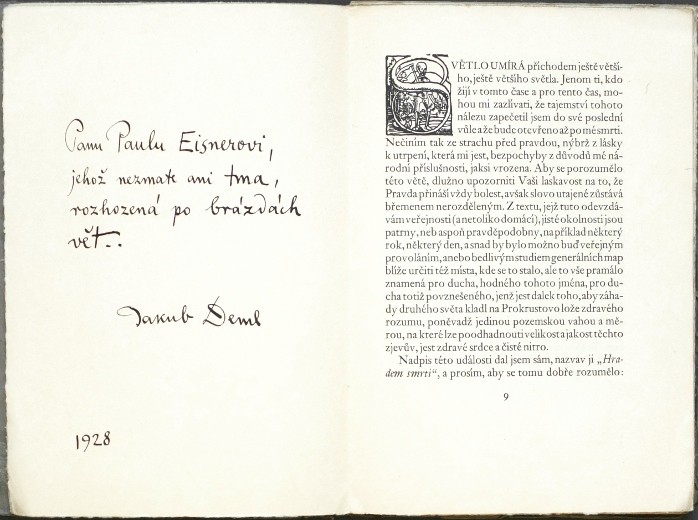 Panu Paulu Eisnerovi,
jehož nezmate ani tma,
rozhozená po brázdách
vět..
Jakub Deml
1928
SVĚTLO UMÍRÁ příchodem ještě větší-
ho, ještě většího světla. Jenom ti, kdo
žijí v tomto čase a pro tento čas, mo-
hou mi zazlívati, že tajemství tohoto
nálezu zapečetil jsem do své poslední
vůle a že bude otevřeno až po mé smrti.
Nečiním tak ze strachu před pravdou, nýbrž z lásky
k utrpení, která mi jest, bezpochyby z důvodů mé ná-
rodní příslušnosti, jaksi vrozena. Aby se porozumělo
této větě, dlužno upozorniti Vaši laskavost na to, že
Pravda přináší vždy bolest, avšak slovo utajené zůstává
břemenem nerozděleným. Z textu, jejž tuto odevzdá-
vám veřejnosti (a netoliko domácí), jisté okolnosti jsou
patrny, neb aspoň pravděpodobny, na příklad některý
rok, některý den, a snad by bylo možno buď veřejným
provoláním, anebo bedlivým studiem generálních map
blíže určiti též místa, kde se to stalo, ale to vše pramálo
znamená pro ducha, hodného tohoto jména, pro du-
cha totiž povznešeného, jenž jest dalek toho, aby záha-
dy druhého světa kladl na Prokrustovo lože zdravého
rozumu, poněvadž jedinou pozemskou vahou a mě-
rou, na které lze poodhadnouti velikost a jakost těchto
zjevův, jest zdravé srdce a čisté nitro.
Nadpis této události dal jsem sám, nazvav ji „Hra-
dem smrti“, a prosím, aby se tomu dobře rozumělo:
9